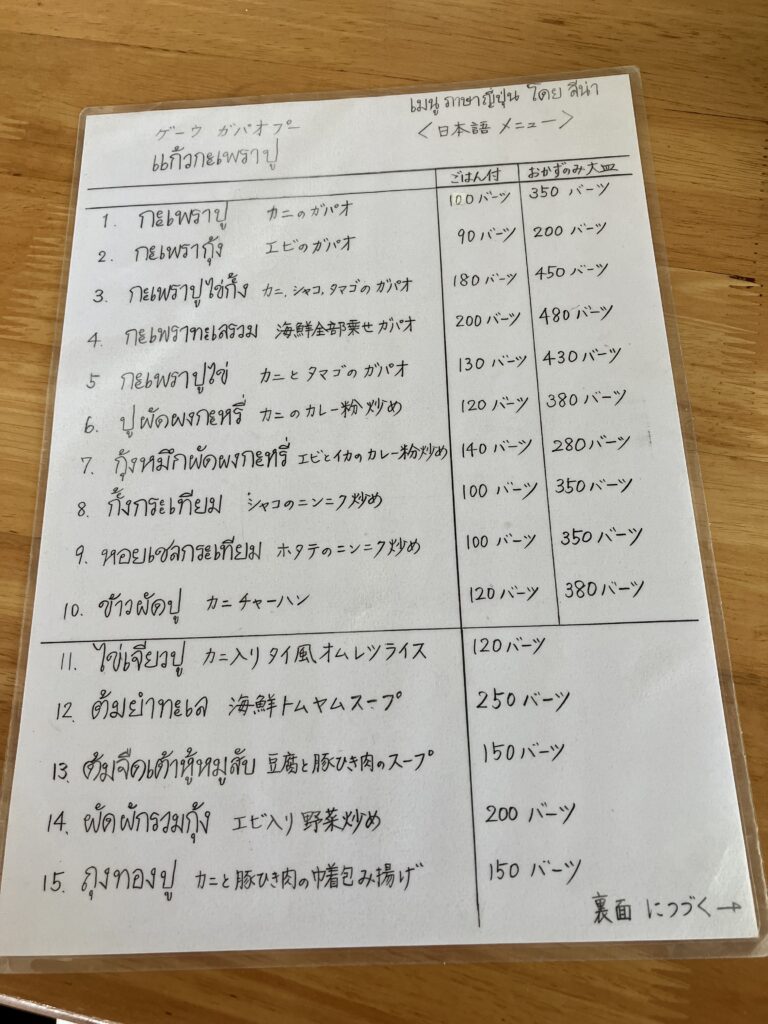 เมนู ภาษาญี่ปุ่น โดย สีน่า
<日本語 メニュー>
ゲーウ ガパオプー
แก้วกะเพราปู
ごはん付 おかずのみ大皿
1. กะเพราปู カニのガパオ 100バーツ 350バーツ
2. กะเพรากุ้ง エビのガパオ 90バーツ 200バーツ
3. กะเพราปูไข่กั้ง カニ,シャコ,タマゴのガパオ 180バーツ 450バーツ
4. กะเพราทะเลรวม 海鮮全部乗せガパオ 200バーツ 480バーツ
5 กะเพราปูไข่ カニとタマゴのガパオ 130バーツ 430バーツ
6. ปูผัดผงกะหรี่ カニのカレー粉炒め 120バーツ 380バーツ
7. กุ้งหมึกผัดผงกะหรี่ エビとイカのカレー粉炒め 140バーツ 280バーツ
8. กั้งกระเทียม シャコのニンニク炒め 100バーツ 350バーツ
9. หอยเชลกระเทียม ホタテのニンニク炒め 100バーツ 350バーツ
10. ข้าวผัดปู カニチャーハン 120バーツ 380バーツ
11. ไข่เจียวปู カニ入りタイ風オムレツライス 120バーツ
12. ต้มยำทะเล 海鮮トムヤムスープ 250バーツ
13. ต้มจืดเต้าหู้หมูสับ 豆腐と豚ひき肉のスープ 150バーツ
14. ผัดผักรวมกุ้ง エビ入り野菜炒め 200バーツ
15. ถุงทองปู カニと豚ひき肉の巾着包み揚げ 150バーツ
裏面につづく→